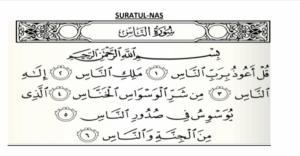 SURATUL-NAS
سُورَةُ النَّاسِ
بِسْمِ اللَّهِ الرَّحْمَٰنِ الرَّحِيمِ
قُلْ أَعُوذُ بِرَبِّ النَّاسِ ١ مَلِكِ النَّاسِ ٢ إِلَٰهِ
النَّاسِ ٣ مِن شَرِّ الْوَسْوَاسِ الْخَنَّاسِ ٤ الَّذِي
يُوَسْوِسُ فِي صُدُورِ النَّاسِ ٥
مِنَ الْجِنَّةِ وَالنَّاسِ ٦